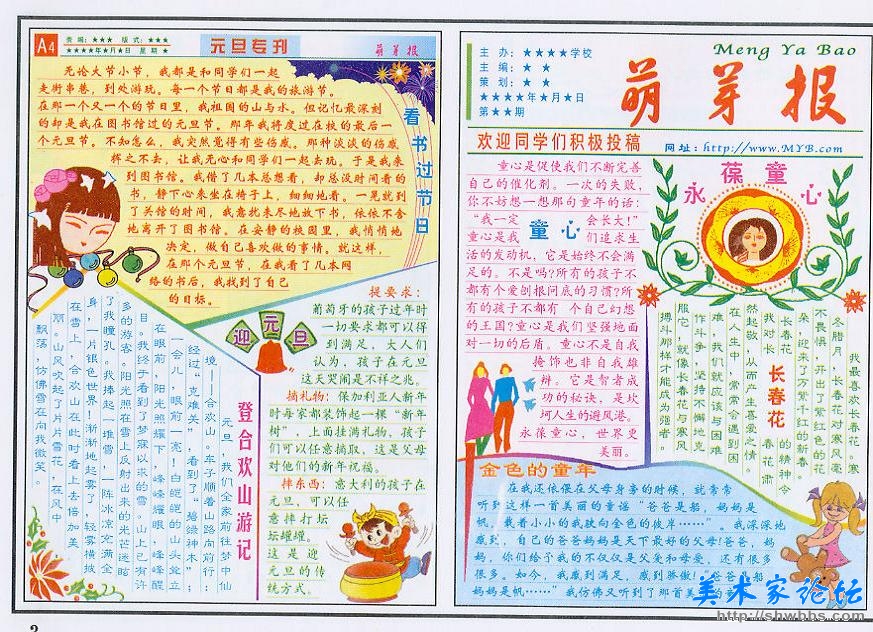 A4
责编：★★★ 版式：★★★
★★★★年★月★日 星期★
元旦专刊
萌芽报
看书过节日
无论大节小节，我都是和同学们一起
走街串巷，到处游玩。每一个节日都是我的旅游节。
在那一个又一个的节日里，我祖国的山与水。但记忆最深刻
的却是我在图书馆过的元旦节。那年我将度过在校的最后一
个元旦节。不知怎么，我突然觉得有些伤感。那种淡淡的伤感
挥之不去，让我无心和同学们一起去玩。于是我来
到图书馆。我借了几本总想看，却总没时间看的
书，静下心来坐在椅子上，细细地看。一晃就到
了关馆的时间，我意犹未尽地放下书，依依不舍
地离开了图书馆。在安静的校园里，我悄悄地
决定，做自己喜欢做的事情。就这样，
在那个元旦节，在我看了几本网
络的书后，我找到了自己
的目标。
登合欢山游记
元旦，我们全家前往梦中仙
境——合欢山。车子顺着山路向前行：
经过“克难关”，看到了“碧绿神木”；
一会儿，眼前一亮！白皑皑的山头耸立
在眼前，阳光照耀下，峰峰耀眼，峰峰醒
目。我终于看到了梦寐以求的雪，山上已有许
多的游客。阳光照在雪上反射出来的光芒迷眩
了我瞳孔。我捧起一堆雪，一阵冰凉充满全
身，一片银色世界！渐渐地起雾了，轻雾横披
在雪上，合欢山在此时看上去倍加美
丽。山风吹起了片片雪花，在风中
飘落，仿佛雪在向我微笑。
迎元旦
提要求：
葡萄牙的孩子过年时
一切要求都可以得
到满足，大人们
认为，孩子在元旦
这天哭闹是不祥之兆。
摘礼物：保加利亚人新年
时每家都装饰起一棵“新年
树”，上面挂满礼物，孩子
们可以任意摘取，这是父母
对他们的新年祝福。
摔东西：意大利的孩子在
元旦，可以任
意摔打坛
坛罐罐。
这是迎
元旦的传
统方式。
主办：★★★★学校
主编：★★
策划：★★
★★★★年★月★日
第★★期
Meng Ya Bao
萌芽报
欢迎同学们积极投稿
网址：http://www.MYB.com
童心
童心是促使我们不断完善
自己的催化剂。一次的失败，
你不妨想一想那句童年的话：
“我一定会长大！”
童心是我们追求生
活的发动机，它是始终不会满
足的。不是吗？所有的孩子不
都有个爱刨根问底的习惯？所
有的孩子不都有个自己幻想
的王国？童心是我们坚强地面
对一切的后盾。童心不是自我
掩饰也非自我雄
辩。它是智者成
功的秘诀，是坎
坷人生的避风港。
永葆童心，世界更
美丽。
永葆童心
长春花
我最喜欢长春花。寒
冬腊月，长春花对寒风毫
不畏惧，开出了紫红色的花
朵，迎来了万紫千红的新春。
长春花的精神令
我对长春花肃
然起敬，从而产生喜爱之情。
在人生中，常常会遇到困
难，我们就应该与困难
作斗争，坚持不懈地克
服它，就像长春花与寒风
搏斗那样才能成为强者。
金色的童年
在我还依偎在父母身旁的时候，就常常
听到这样一首美丽的童谣“爸爸是船，妈妈是
帆，载着小小的我驶向金色的彼岸……”。我深深地
感到，自己的爸爸妈妈是天下最好的父母！爸爸，妈
妈，你们给予我的不仅仅是父爱和母爱，还有很多
很多。如今，我感到满足，感到骄傲！“爸爸是船
妈妈是帆……”我仿佛又听到了那首美
美术家论坛
http://shwbbs.com
2